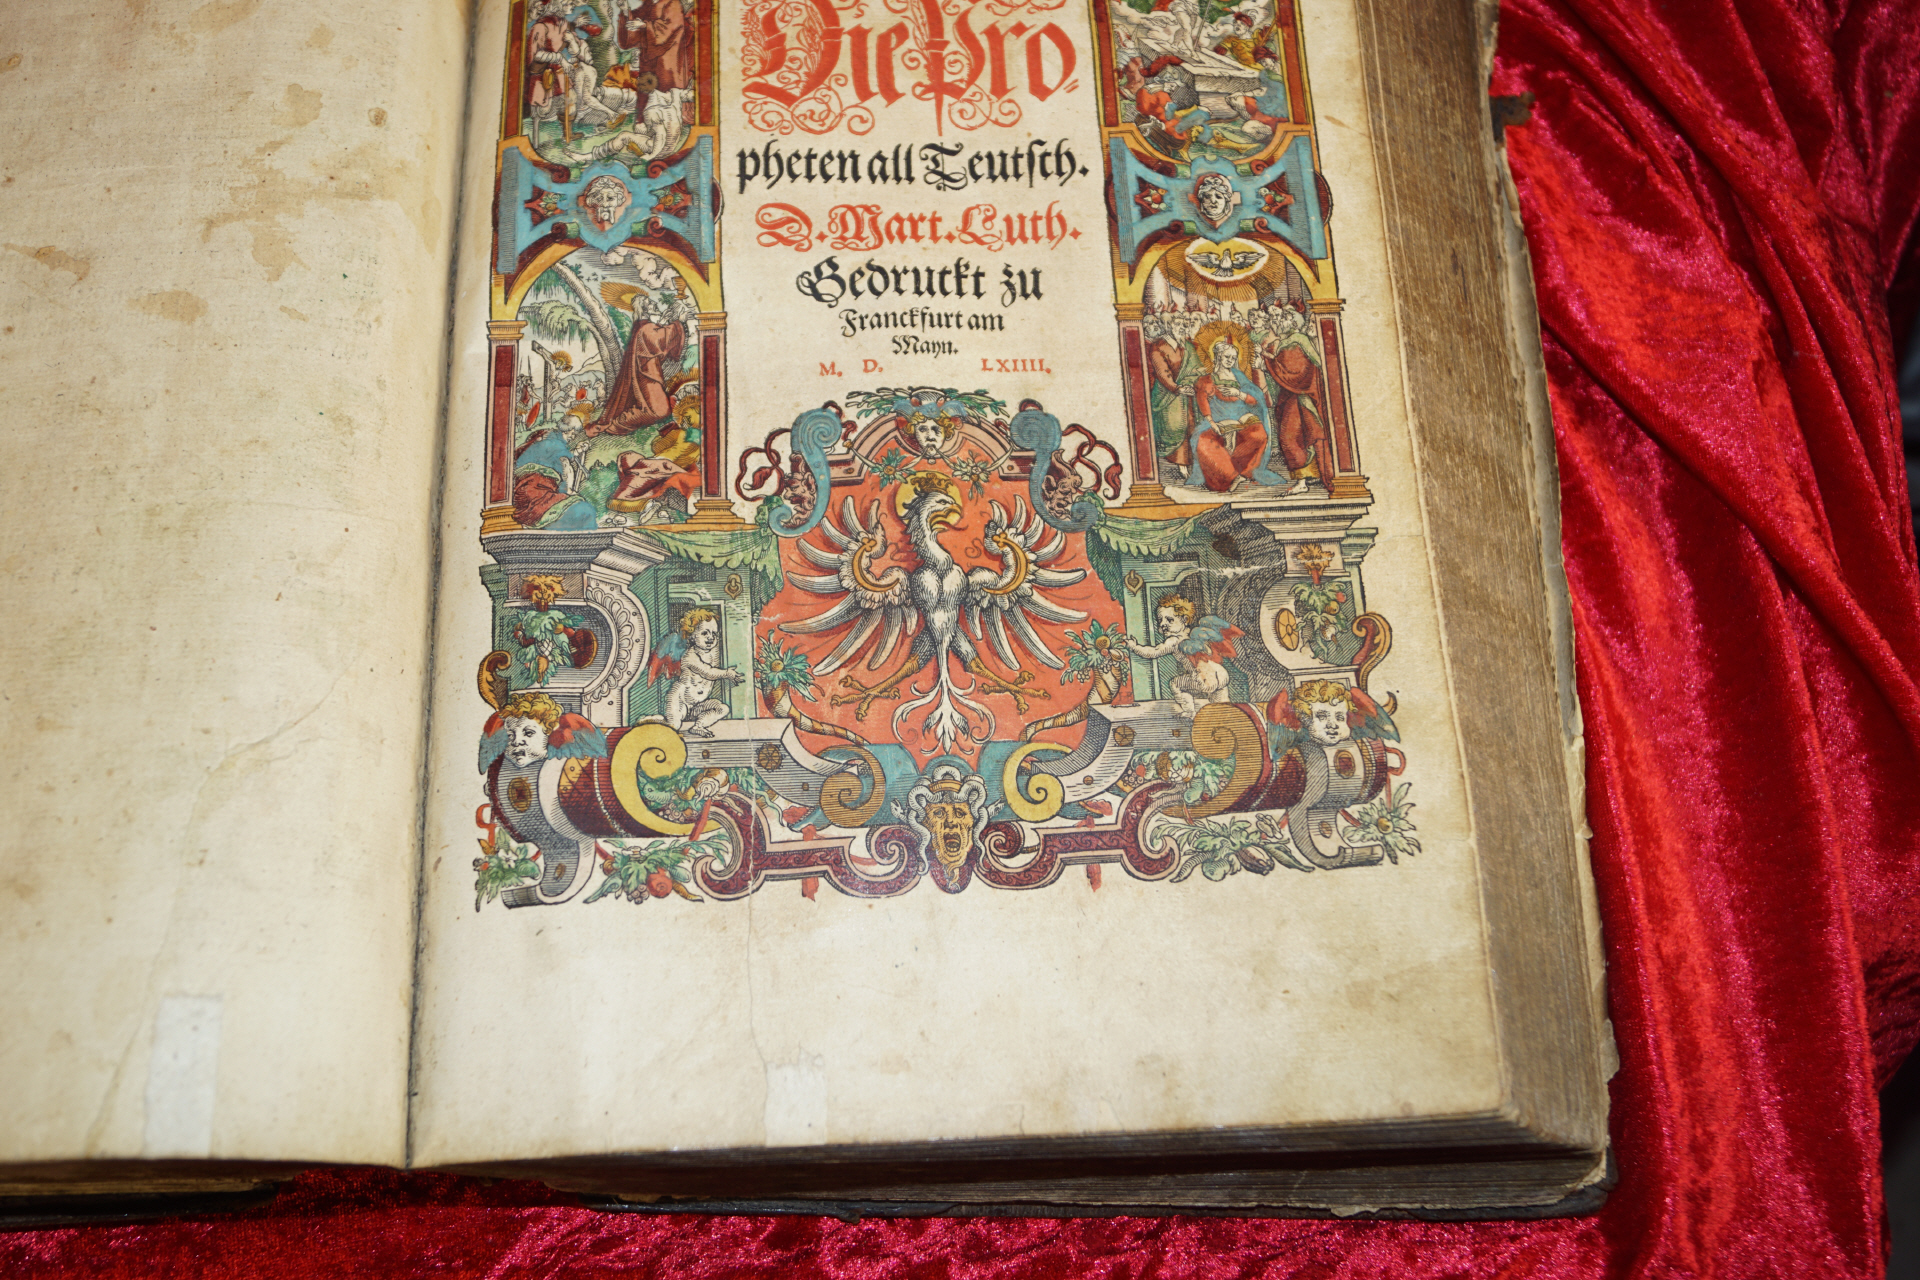 Die Pro⸗
pheten all Teutſch.
D. Mart. Luth.
Gedruckt zu
Franckfurt am
Mayn.
M. D. LXIIII.